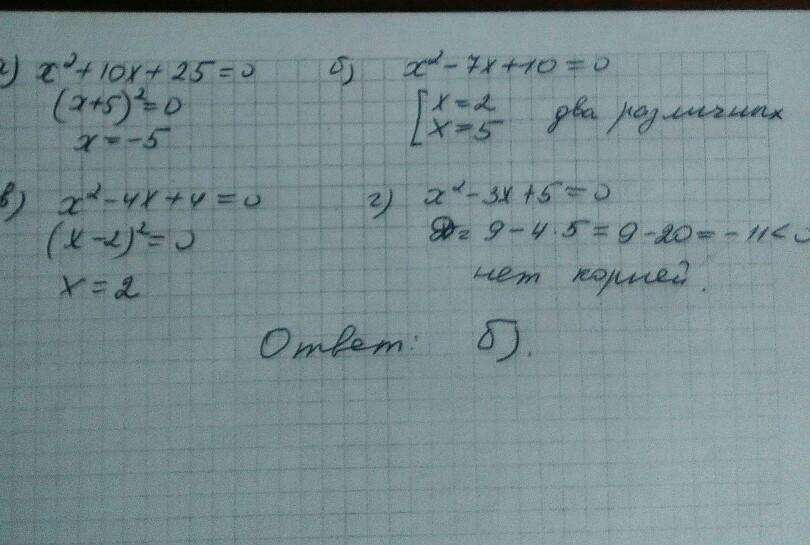 а) x²+10x+25=0
(x+5)²=0
x=-5
б) x²-7x+10=0
[x=2
x=5
два различных
в) x²-4x+4=0
(x-2)²=0
x=2
г) x²-3x+5=0
D= 9-4·5=9-20=-11<0
нет корней.
Ответ: б).